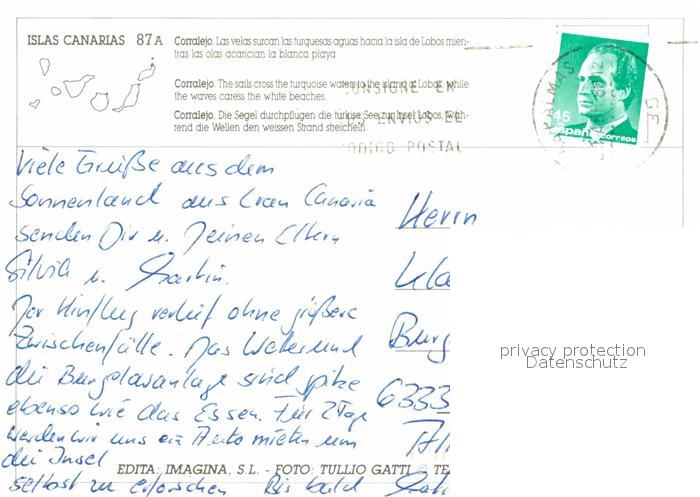 ISLAS CANARIAS 87A
Corralejo. Las velas surcan las turquesas aguas hacia la isla de Lobos mien-
tras las olas acarician la blanca playa.
Corralejo. The sails cross the turquoise waters to the island of Lobos, while
the waves caress the white beaches.
Corralejo. Die Segel durchpflügen die türkise See zur Insel Lobos, wäh-
rend die Wellen den weissen Strand streicheln.
CONSIGNE EN
ENVIOS EL
CODIGO POSTAL
LAS PALMAS
45
España
correos
Viele Grüße aus dem
Sonnenland aus Gran Canaria
senden Dir u. Deinen Eltern
Silvia u.
Der Hinflug verlief ohne größere
Zwischenfälle. Das Wetter und
die Bungalowanlage sind spitze
ebenso wie das Essen. Für 2 Tage
werden wir uns ein Auto mieten um
die Insel
selbst zu erforschen Bis bald
Herrn
Kla
Burg
6333
privacy protection
Datenschutz
EDITA: IMAGINA, S.L. - FOTO: TULLIO GATTI © TE